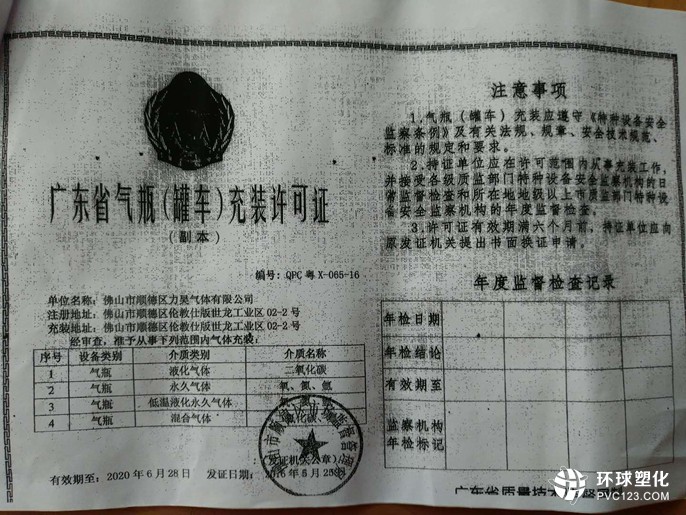 广东省气瓶(罐车)充装许可证
(副本)
编号: QPC 粤 X-065-16
单位名称: 佛山市顺德区力昊气体有限公司
注册地址: 佛山市顺德区伦教仕版世龙工业区 02-2 号
充装地址: 佛山市顺德区伦教仕版世龙工业区 02-2 号
经审查, 准予从事下列范围内气体充装:
序号 设备类别 介质类别 介质名称
1 气瓶 液化气体 二氧化碳
2 气瓶 永久气体 氧、氮、氩
3 气瓶 低温液化永久气体 氧、氮、氩
4 气瓶 混合气体
发证机关(公章)
有效期至: 2020 年 6 月 28 日 发证日期:
注意事项
1.气瓶(罐车)充装应遵守《特种设备安全
监察条例》及有关法规、规章、安全技术规范、
标准的规定和要求。
2.持证单位应在许可范围内从事充装工作,
并接受各级质监部门特种设备安全监察机构的日
常监督检查和所在地地级以上市质监部门特种设
备安全监察机构的年度监督检查。
3.许可证有效期满六个月前,持证单位应向
原发证机关提出书面换证申请。
年度监督检查记录
年检日期
年检结论
有效期至
监察机构
年检标记
广东省质量技术
环球塑化
PVC123.com